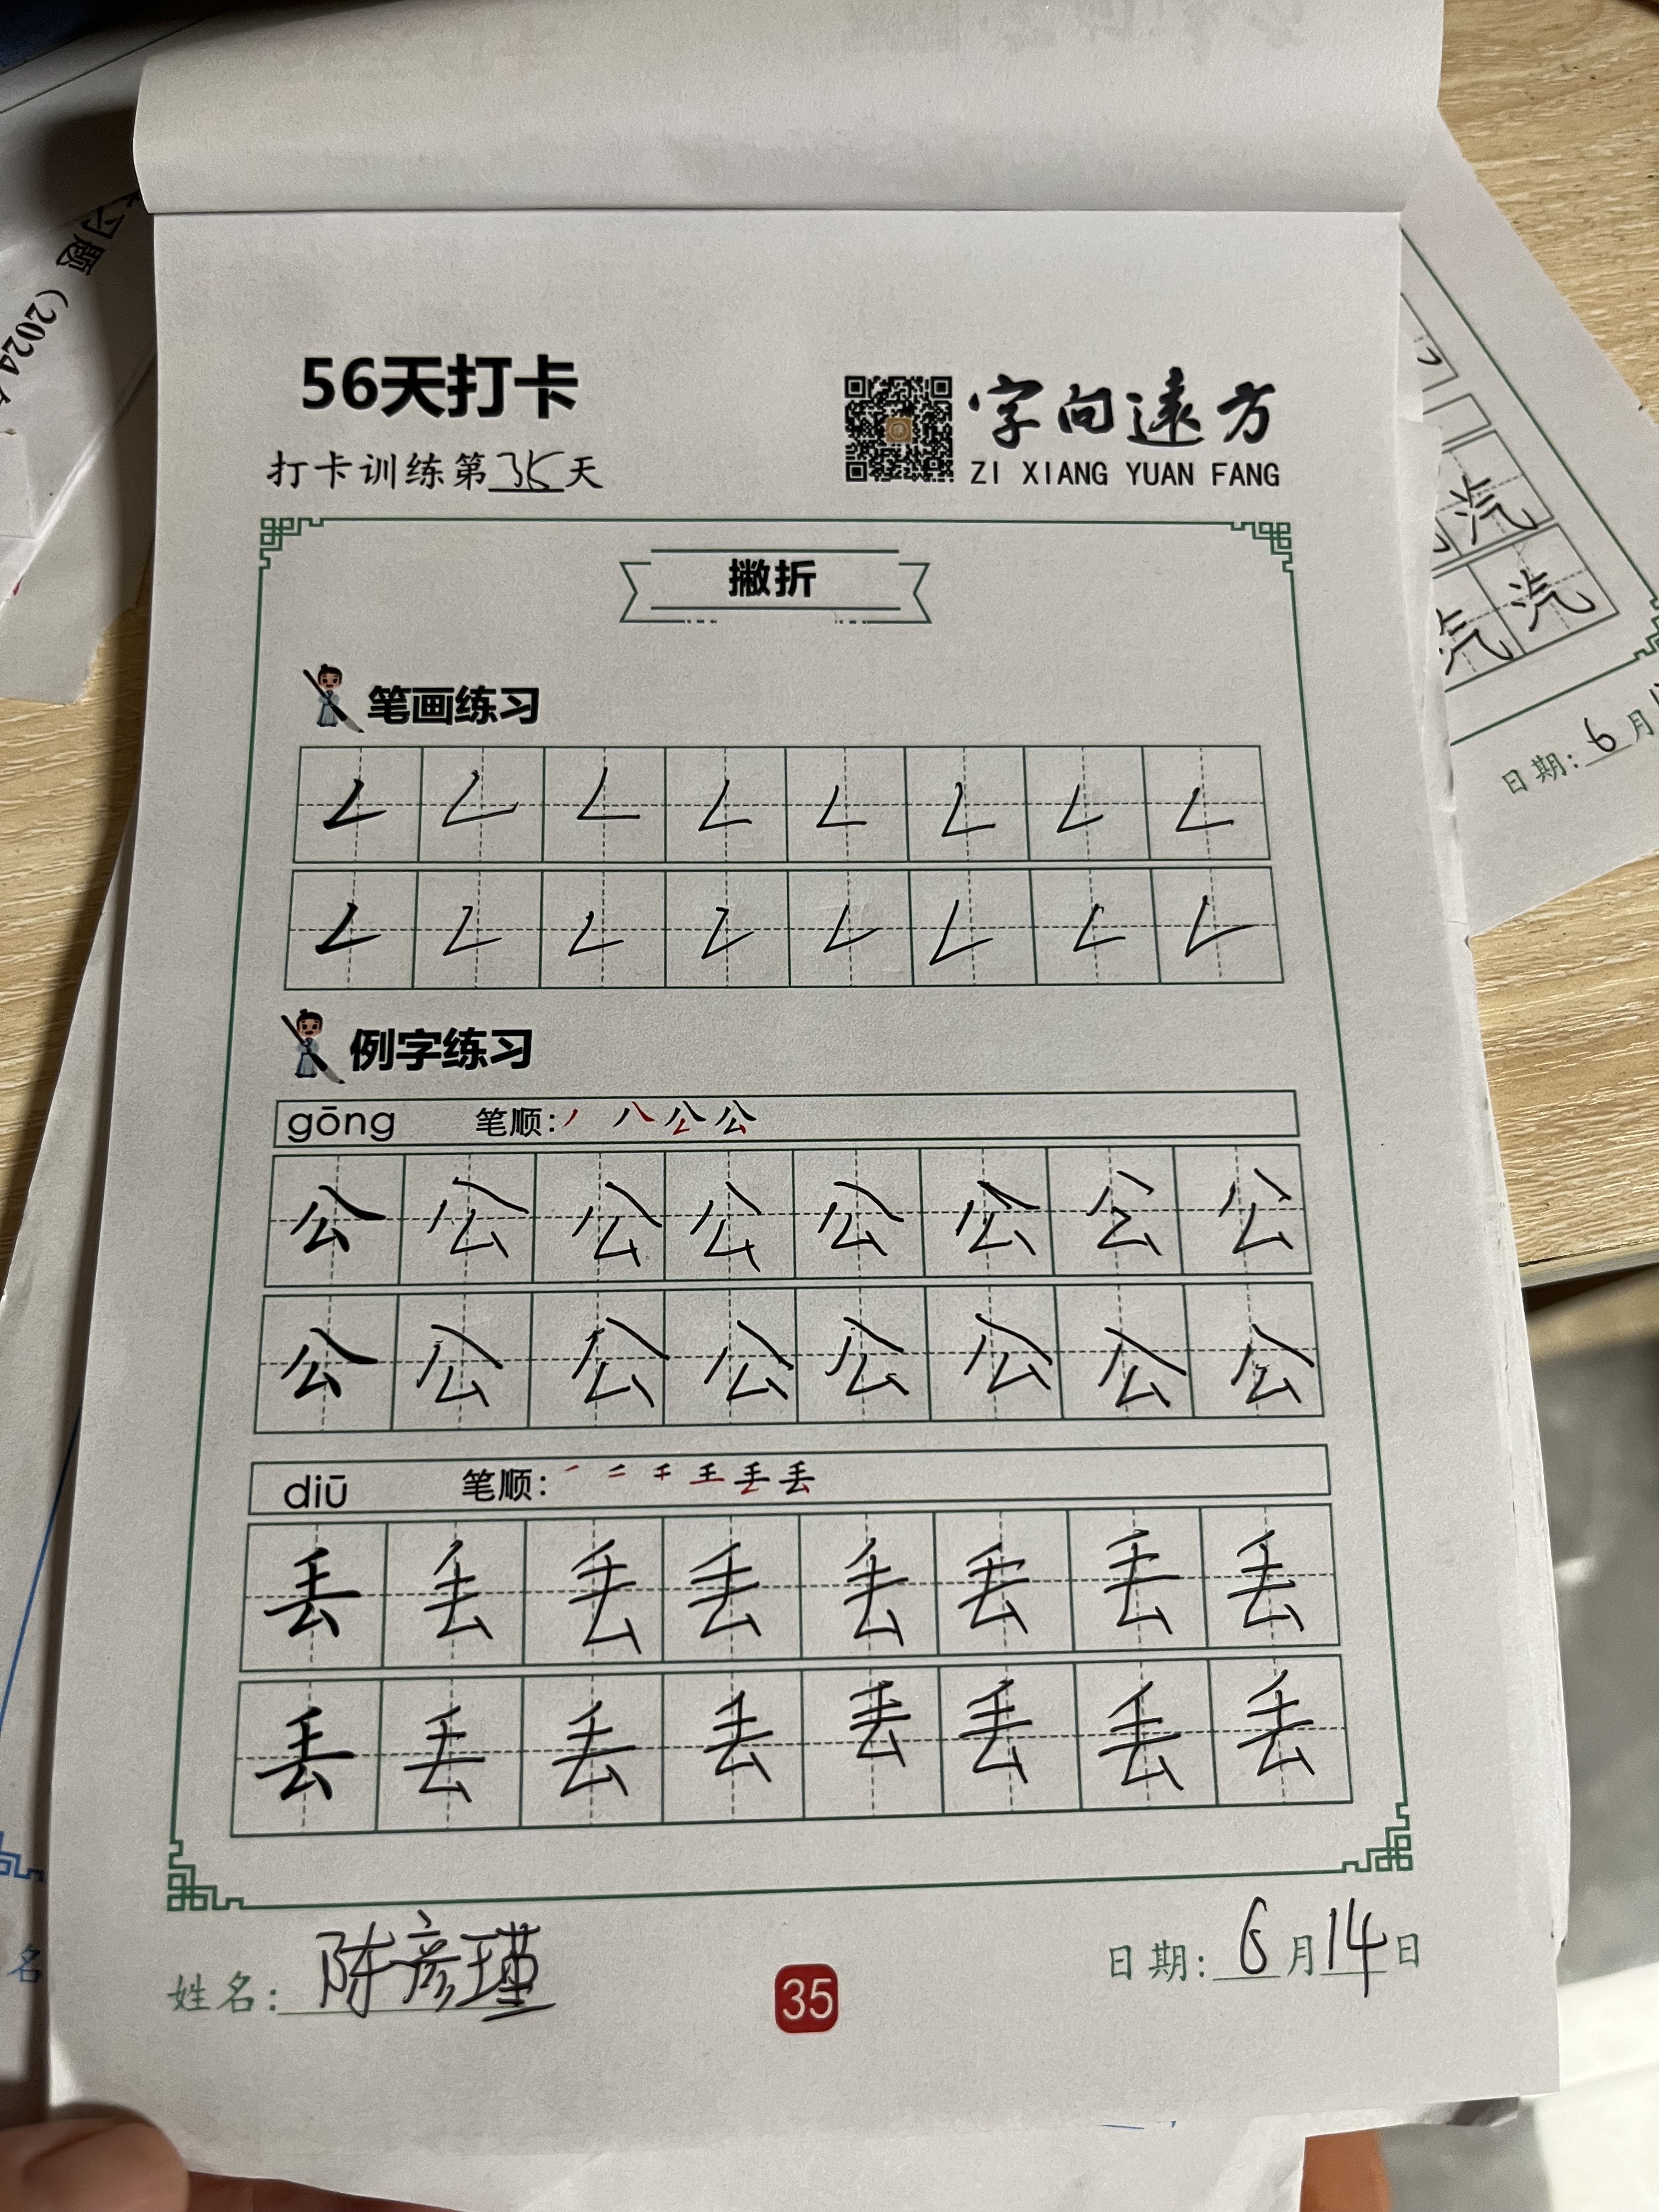 56天打卡
打卡训练第35天
字向遠方
ZI XIANG YUAN FANG
撇折
笔画练习
例字练习
gōng 笔顺:
公 公 公 公 公 公 公 公
公 公 公 公 公 公 公 公
diū 笔顺:
丢 丢 丢 丢 丢 丢 丢 丢
丢 丢 丢 丢 丢 丢 丢 丢
姓名: 陈彦瑾
35
日期: 6月14日
习题（2024
汽
汽 汽
日期: 6月
名